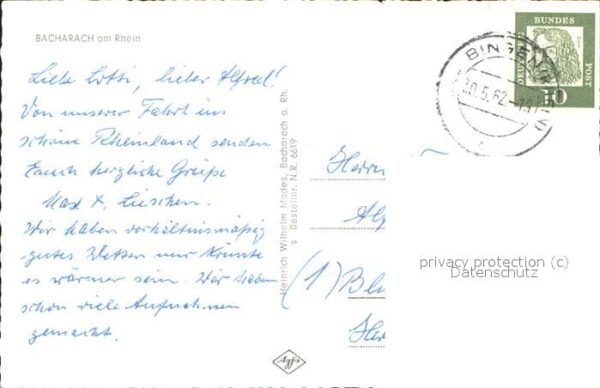 BACHARACH am Rhein
Liebe Lotti, lieber Alfred!
Von unserer Fahrt ins
schöne Rheinland senden
Euch herzliche Grüße
Max u. Lieschen.
Wir haben verhältnismäßig
gutes Wetter nur könnte
es wärmer sein. Wir haben
schon viele Aufnahmen
gemacht.
Heinrich Wilhelm Mades, Bacharach a. Rh.
Bestellnr. N.R. 6619
BINGEN
20.5.62
DEUTSCHE
BUNDES
POST
10
Herrn
Alf
(1) Be
privacy protection (c)
Datenschutz